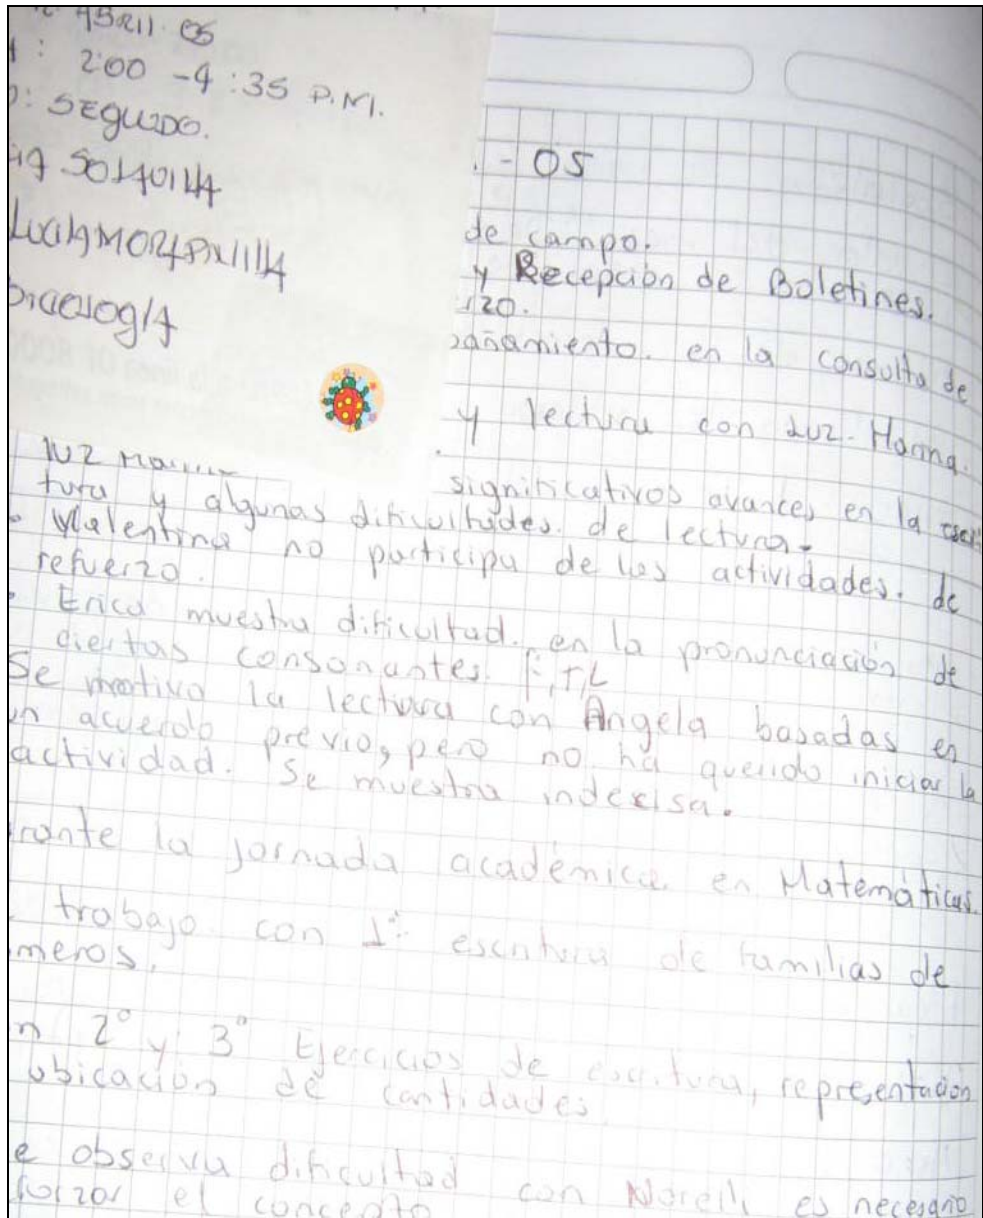 ABRIL 05
: 2:00 - 4:35 P.M.
: SEGUNDO.
- 05
de campo.
y Recepción de Boletines.
rzo.
pañamiento. en la consulta de
y lectura con Luz. Marina.
Luz
significativos avances en la escri
tura y algunas dificultades. de lectura.
• Valentina no participa de las actividades. de
refuerzo.
• Erica muestra dificultad. en la pronunciación de
ciertas consonantes. F, T, L
Se motivo la lectura con Angela basadas en
un acuerdo previo, pero no ha querido iniciar la
actividad. Se muestra indecisa.
rante la jornada académica. en Matemáticas.
trabajo. con 1º: escritura de familias de
meros.
n 2º y 3º Ejercicios de escritura, representación
ubicación de cantidades.
e observa dificultad con Norelli es necesario
forzar el concepto